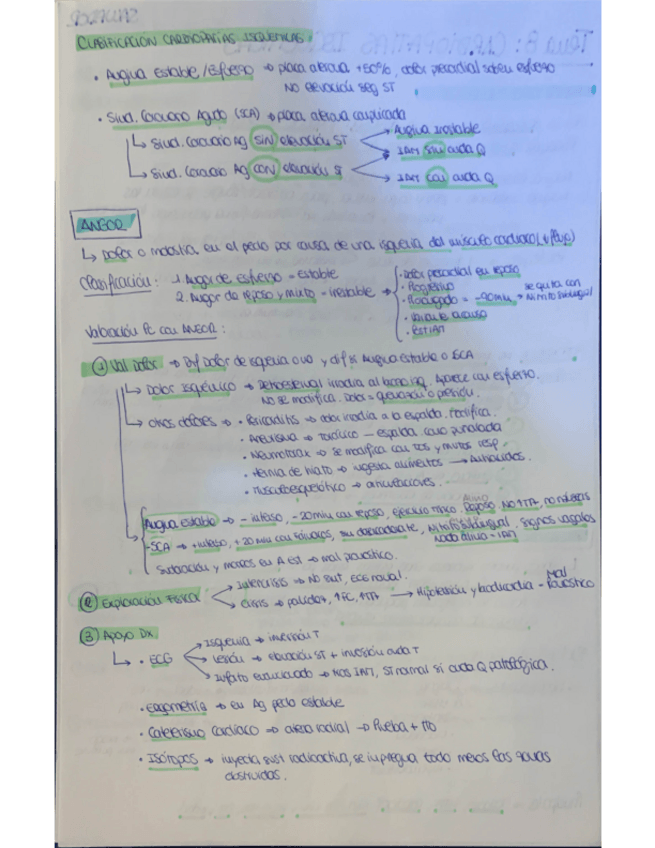 CLASIFICACIÓN CARDIOPATÍAS ISQUÉMICAS:
• Angina Estable/Esfuerzo → placa ateroma +50%, dolor precordial sobre esfuerzo
NO elevación seg ST
• Sínd. Coronario Agudo (SCA) → placa ateroma complicada
↳ Sínd. Coronario Ag SIN elevación ST
Angina inestable
IAM SIN onda Q
↳ Sínd. Coronario Ag CON elevación ST
IAM CON onda Q
ANGOR
↳ Dolor o molestia en el pecho por causa de una isquemia del músculo cardiaco (↓ flujo)
Clasificación: 1. Angor de esfuerzo = estable
2. Angor de reposo y mixto = inestable →
• Dolor precordial en reposo
• Progresivo
• Prolongado = -20min → se quita con Nitrito sublingual
• Variante
• Post IAM
Valoración Pc con ANGOR:
① Val Dolor → Dif Dolor de isquemia o no y dif si Angina estable o SCA
↳ Dolor Isquémico → Retroesternal irradia al brazo izq. Aparece con esfuerzo.
No se modifica. Dolor = quemazón o presión.
↳ Otros dolores → • Pericarditis → dolor irradia a la espalda. Modifica.
• Aneurisma → Torácico — espalda como puñalada
• Neumotórax → se modifica con tos y mvtos resp.
• Hernia de hiato → ingesta alimentos → Antiácidos.
• Musculoesquelético → articulaciones.
Angina estable → - intenso, -20min con reposo, ejercicio físico. Alivio Reposo. No ↑TTA, no náuseas
-SCA → +intenso, +20min con fármacos, sin desencadenante, Nitrito sublingual, signos vagales
Nada alivia = IAM
Sudoración y mareos en A Est → mal pronóstico.
② Exploración Física
Intercrisis → No sint, ECG normal.
Crisis → palidez, ↑FC, ↑TTA → Hipotensión y bradicardia = Mal Pronóstico
③ Apoyo Dx
↳ • ECG
Isquemia → inversión T
Lesión → elevación ST + inversión onda T
Infarto evolucionado → ST normal si onda Q patológica.
• Ergometría → en Ag pecho estable
• Cateterismo cardiaco → arteria radial → Prueba + TTO
• Isótopos → inyecta sust radioactiva, se impregna todo menos las zonas
obstruidas.